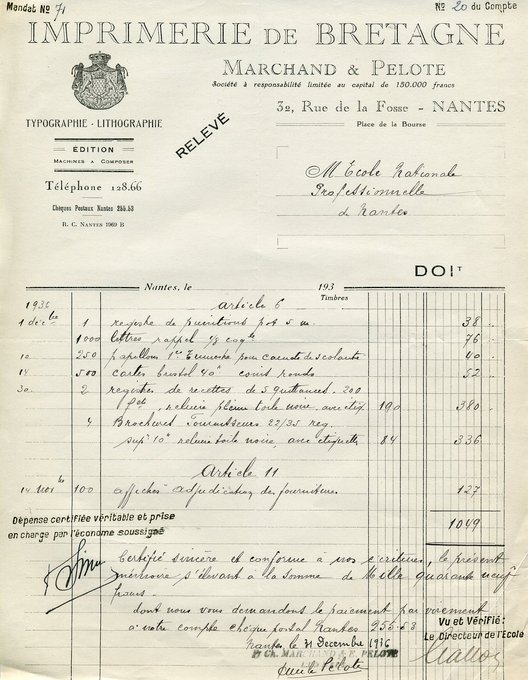 Mandat № 71
№ 20 du Compte
IMPRIMERIE DE BRETAGNE
MARCHAND & PELOTE
Société à responsabilité limitée au capital de 150.000 francs
32, Rue de la Fosse - NANTES
Place de la Bourse
TYPOGRAPHIE - LITHOGRAPHIE
RELEVÉ
ÉDITION
MACHINES A COMPOSER
Téléphone 128.66
Chèques Postaux Nantes 255.53
R. C. NANTES 1969 B
M Ecole Nationale
Professionnelle
de Nantes
DOIT
Nantes, le 193
Timbres
1936 Article 6
1 déc 1 registre de punitions 38
1000 lettres rappel 76
10 250 papillons 1er Trimestre pour carnets de scolarité 40
14 500 cartes bristol 40 coins ronds 52
30 2 registres de recettes de 5 quittances. 200
reliure pleine toile noire, avec étiq 190 380
4 Brochures Fournisseurs 22/35 reg.
reliure toile noire, avec étiquettes 84 336
Article 11
14 100 affiches adjudication de fournitures 127
1049
Dépense certifiée véritable et prise
en charge par l'économe soussigné
Certifié sincère et conforme à nos écritures, le présent
mémoire s'élevant à la somme de Mille quarante neuf
francs.
dont nous vous demandons le paiement par virement
à notre compte chèque postal Nantes 255-53
Vu et Vérifié:
Le Directeur de l'École
Nantes le 31 Décembre 1936
CH. MARCHAND & E. PELOTE
Emile Pelote